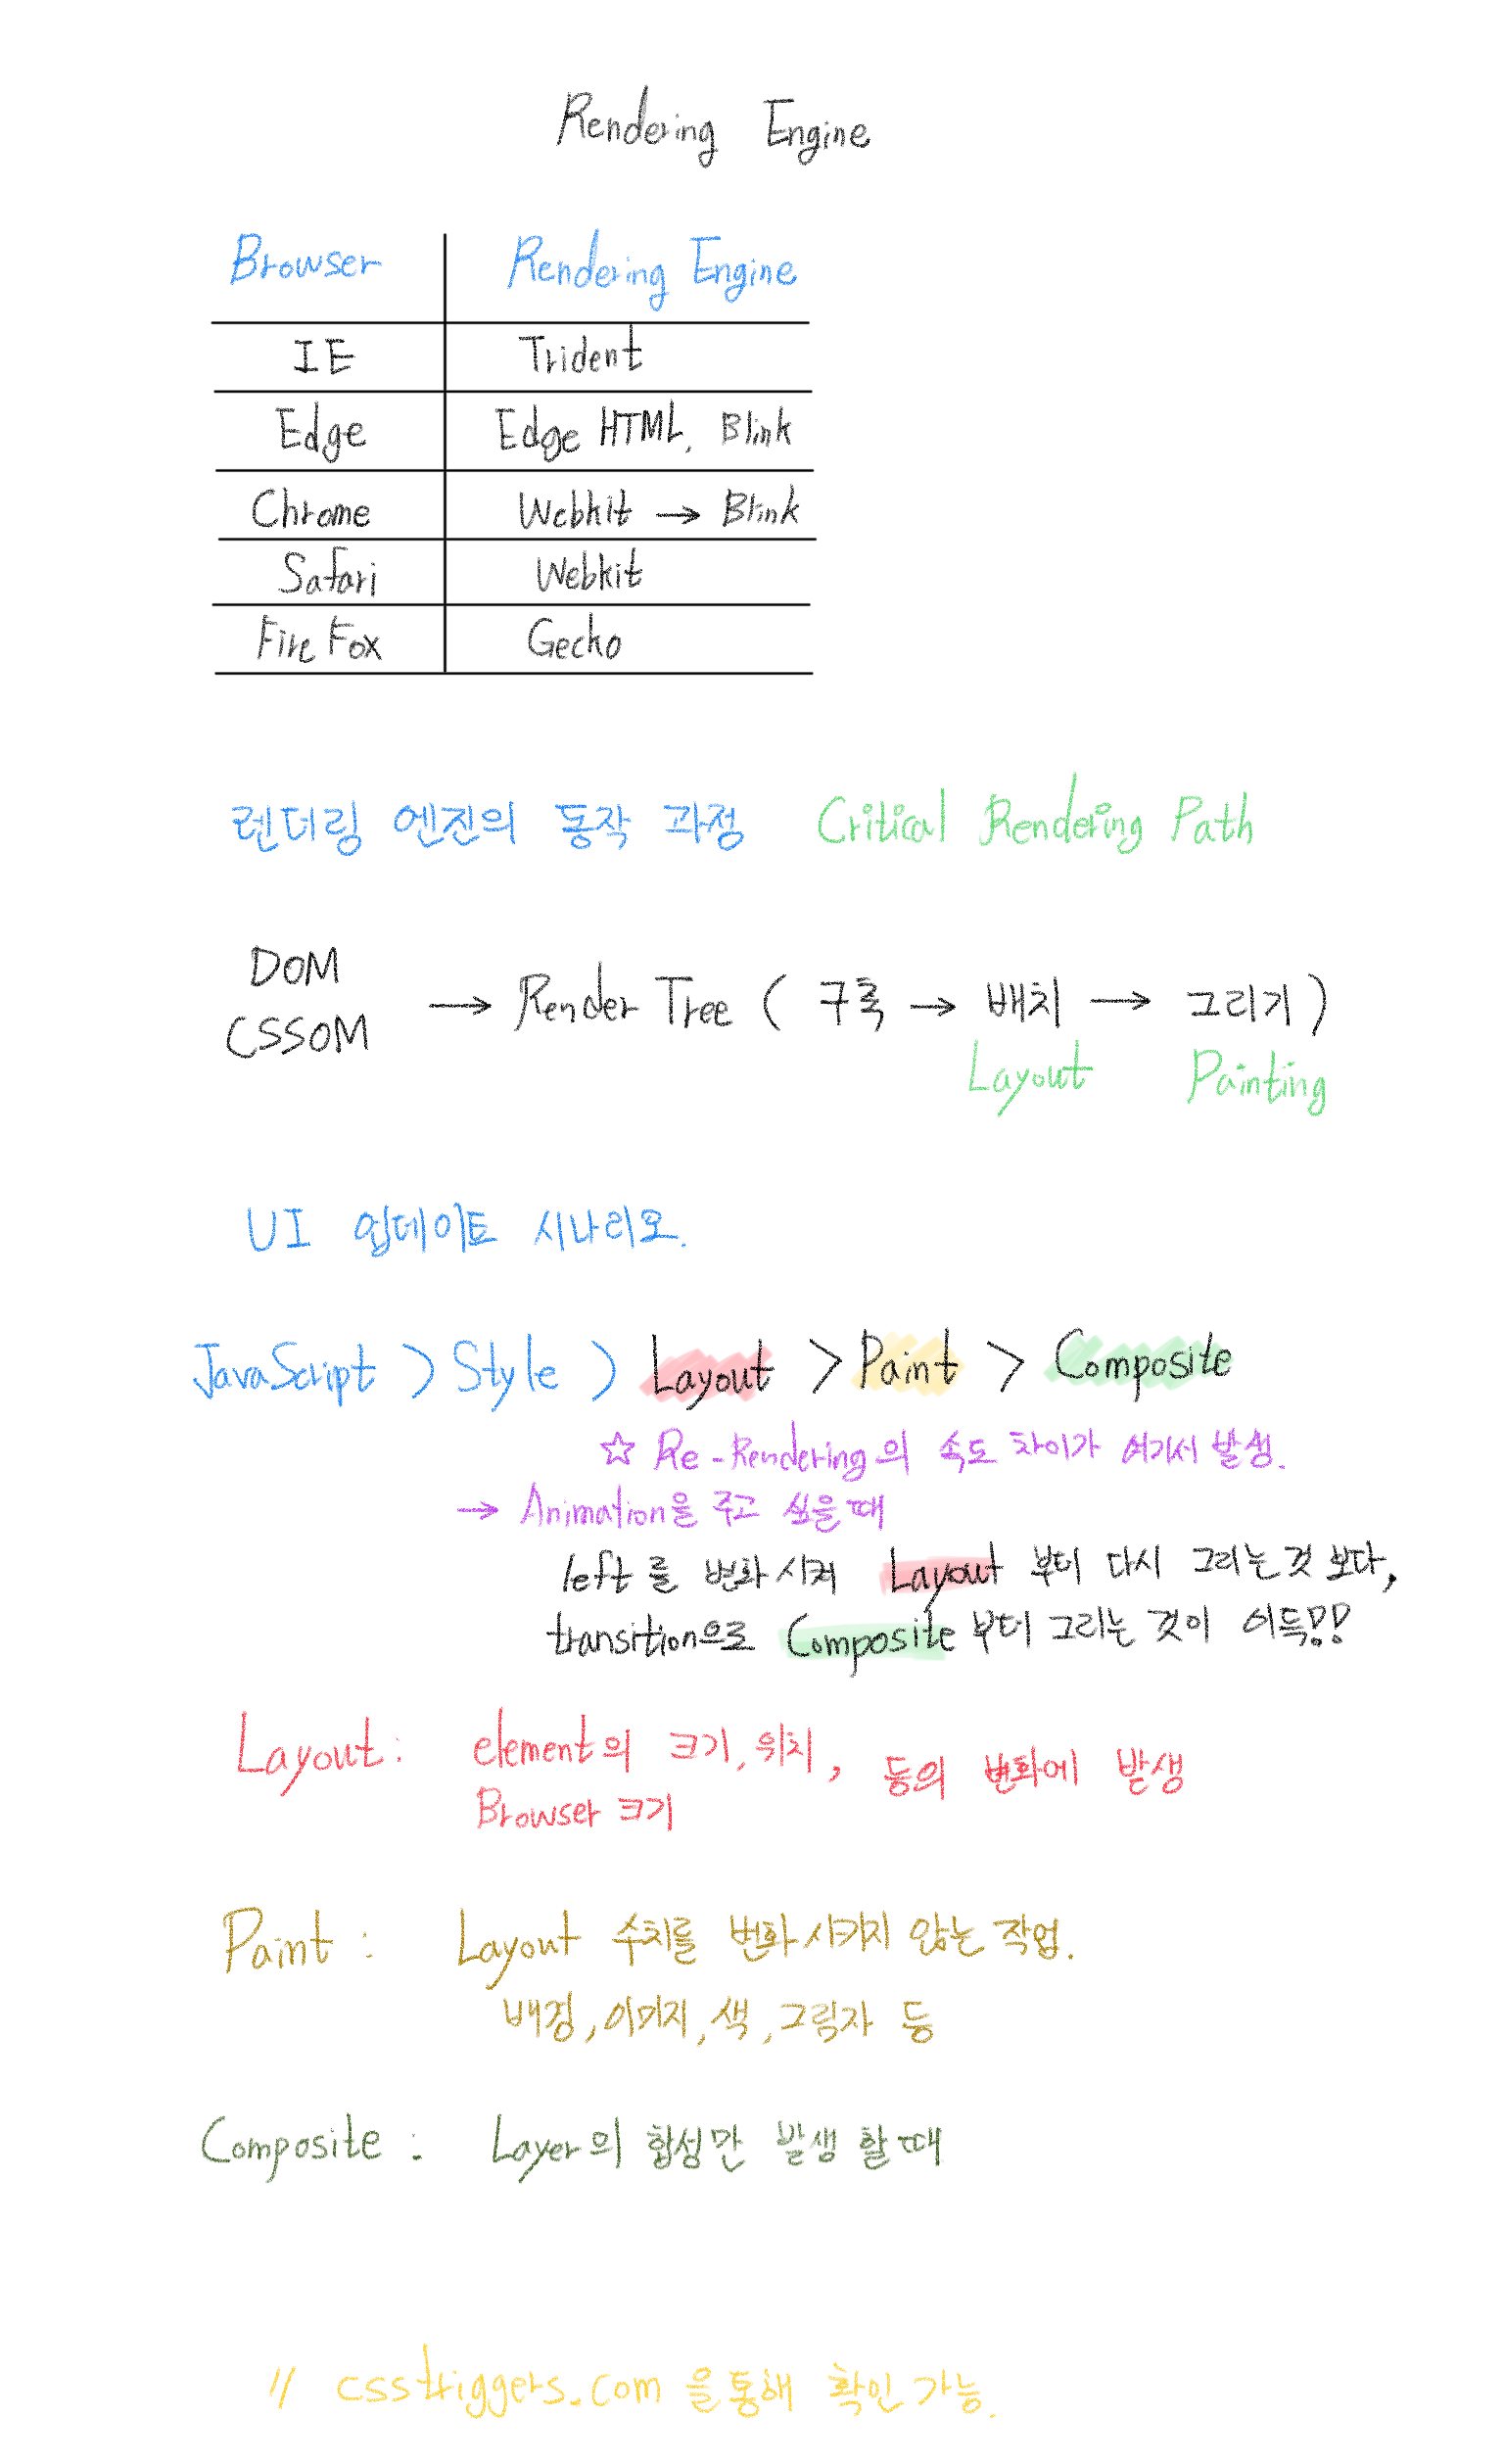 Rendering Engine
Browser Rendering Engine
IE Trident
Edge Edge HTML, Blink
Chrome Webkit → Blink
Safari Webkit
FireFox Gecko
렌더링 엔진의 동작 과정 Critical Rendering Path
DOM
CSSOM → Render Tree ( 구축 → 배치 → 그리기 )
Layout Painting
UI 업데이트 시나리오.
JavaScript > Style > Layout > Paint > Composite
☆ Re-Rendering의 속도 차이가 여기서 발생.
→ Animation을 주고 싶을 때
left 를 변화 시켜 Layout 부터 다시 그리는 것 보다,
transition으로 Composite 부터 그리는 것이 이득!!
Layout : element의 크기, 위치, 등의 변화에 발생
Browser 크기
Paint : Layout 수치를 변화 시키지 않는 작업.
배경, 이미지, 색, 그림자 등
Composite : Layer의 합성만 발생 할 때
// csstriggers.com 을 통해 확인 가능.